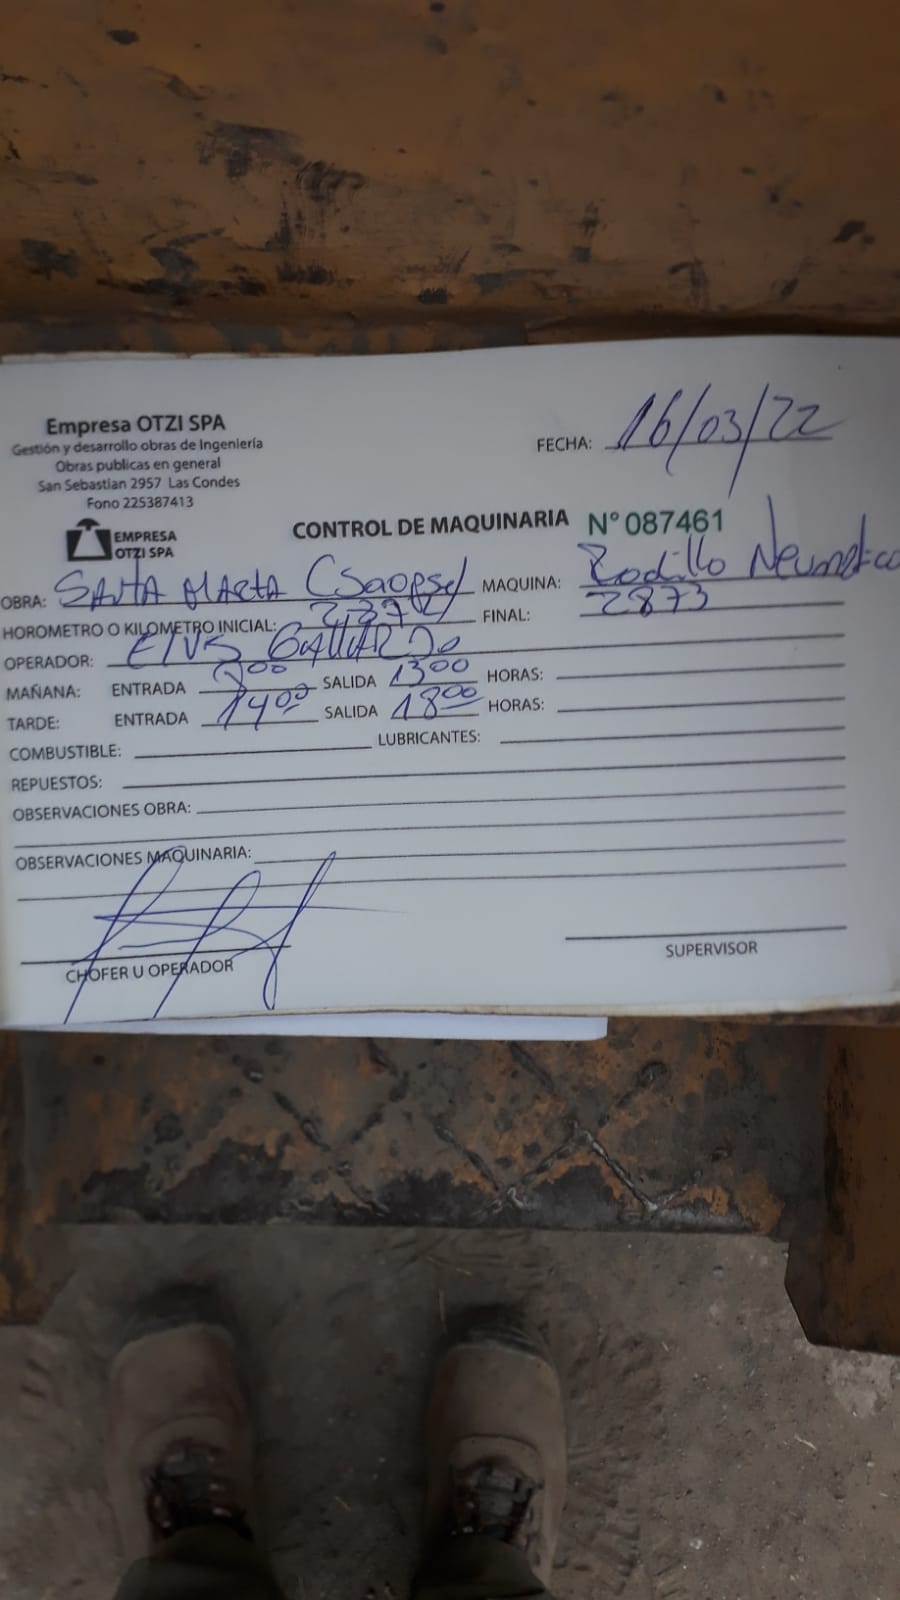 Empresa OTZI SPA
Gestión y desarrollo obras de Ingeniería
Obras publicas en general
San Sebastian 2957 Las Condes
Fono 225387413
FECHA: 16/03/22
EMPRESA
OTZI SPA
CONTROL DE MAQUINARIA N° 087461
OBRA: SANTA MARTA MAQUINA: Rodillo Neumatico
HOROMETRO O KILOMETRO INICIAL: FINAL: 2873
OPERADOR: GALLARDO
MAÑANA: ENTRADA SALIDA 1300 HORAS:
TARDE: ENTRADA 1400 SALIDA 1800 HORAS:
COMBUSTIBLE: LUBRICANTES:
REPUESTOS:
OBSERVACIONES OBRA:
OBSERVACIONES MAQUINARIA:
CHOFER U OPERADOR
SUPERVISOR